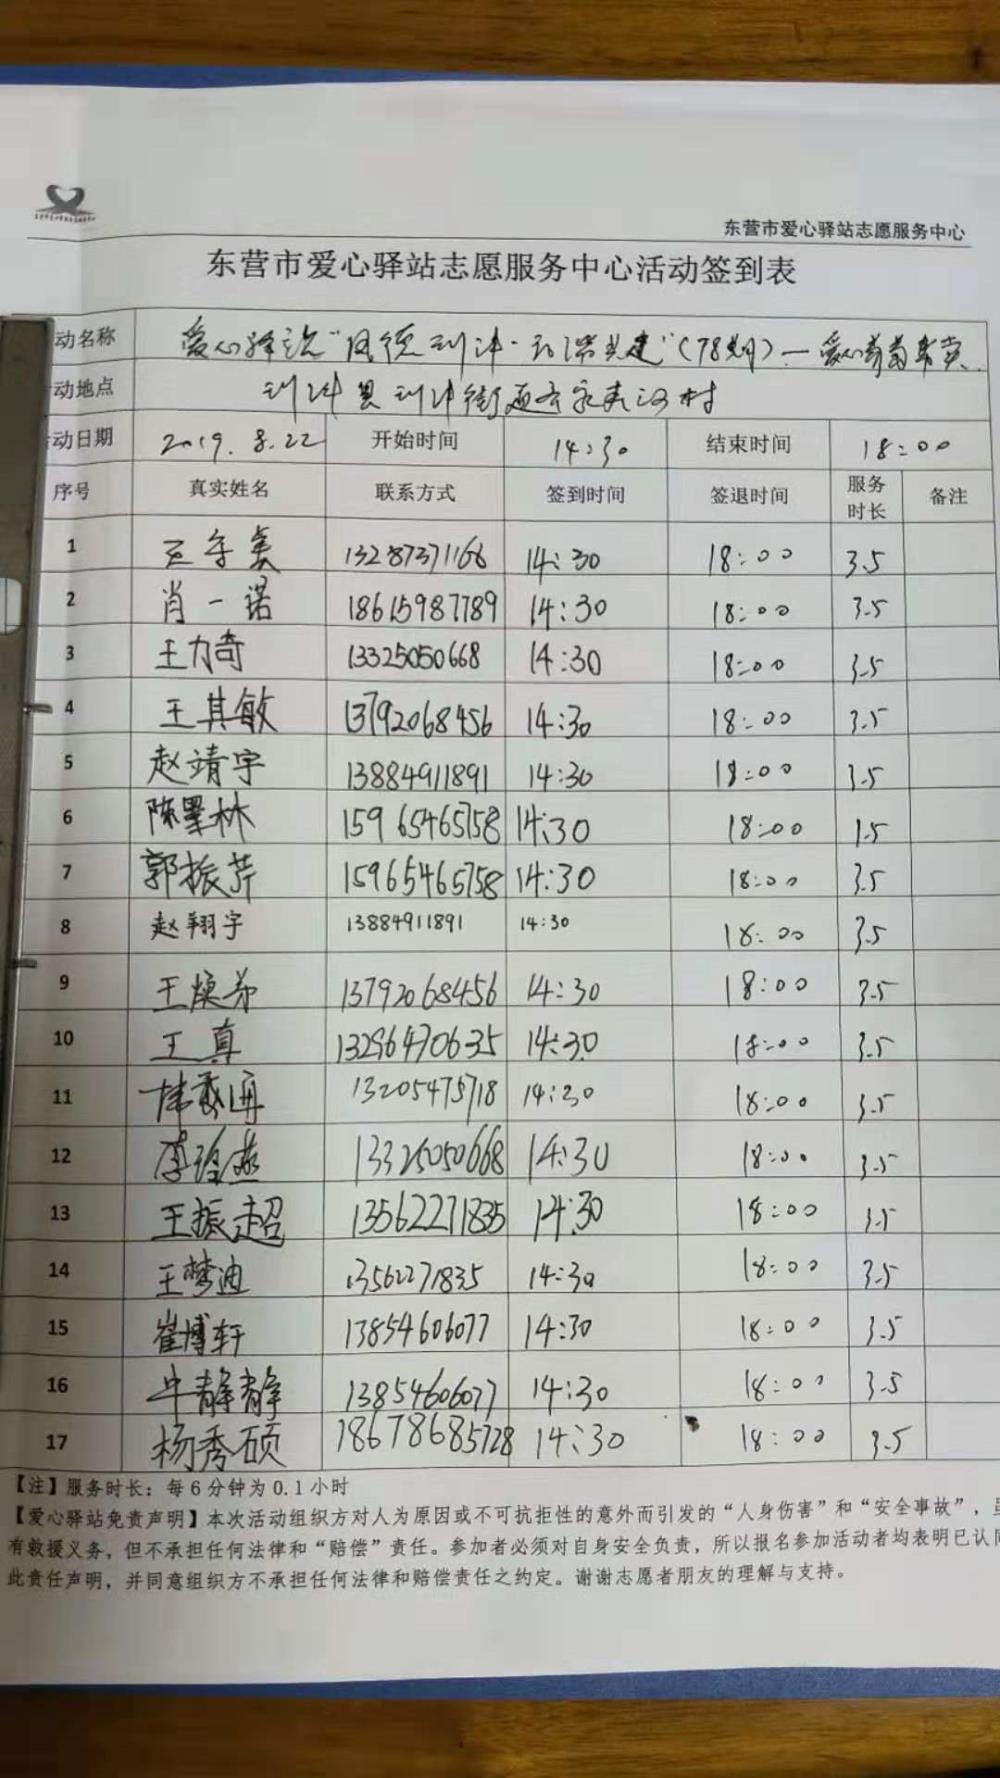 东营市爱心驿站志愿服务中心
东营市爱心驿站志愿服务中心活动签到表
动名称 爱心驿站"同德利津·共建"(78期)—爱心
动地点 利津县利津街道 村
动日期 2019.8.22 开始时间 14:30 结束时间 18:00
序号 真实姓名 联系方式 签到时间 签退时间 服务时长 备注
1 13287371166 14:30 18:00 3.5
2 肖一诺 18615987789 14:30 18:00 3.5
3 王力奇 13325050668 14:30 18:00 3.5
4 王其敏 13792068456 14:30 18:00 3.5
5 赵靖宇 13884911891 14:30 18:00 3.5
6 陈 林 15965465758 14:30 18:00 1.5
7 郭振芹 15965465758 14:30 18:00 3.5
8 赵翔宇 13884911891 14:30 18:00 3.5
9 王焕 13792068456 14:30 18:00 3.5
10 王真 13296470635 14:30 18:00 3.5
11 13205475718 14:30 18:00 3.5
12 李 燕 13325050668 14:30 18:00 3.5
13 王振超 13562271835 14:30 18:00 3.5
14 王梦迪 13562271835 14:30 18:00 3.5
15 崔博轩 13854606077 14:30 18:00 3.5
16 牛静静 13854606077 14:30 18:00 3.5
17 杨秀硕 18678685728 14:30 18:00 3.5
【注】服务时长：每6分钟为0.1小时
【爱心驿站免责声明】本次活动组织方对人为原因或不可抗拒性的意外而引发的“人身伤害”和“安全事故”，虽
有救援义务，但不承担任何法律和“赔偿”责任。参加者必须对自身安全负责，所以报名参加活动者均表明已认同
此责任声明，并同意组织方不承担任何法律和赔偿责任之约定。谢谢志愿者朋友的理解与支持。